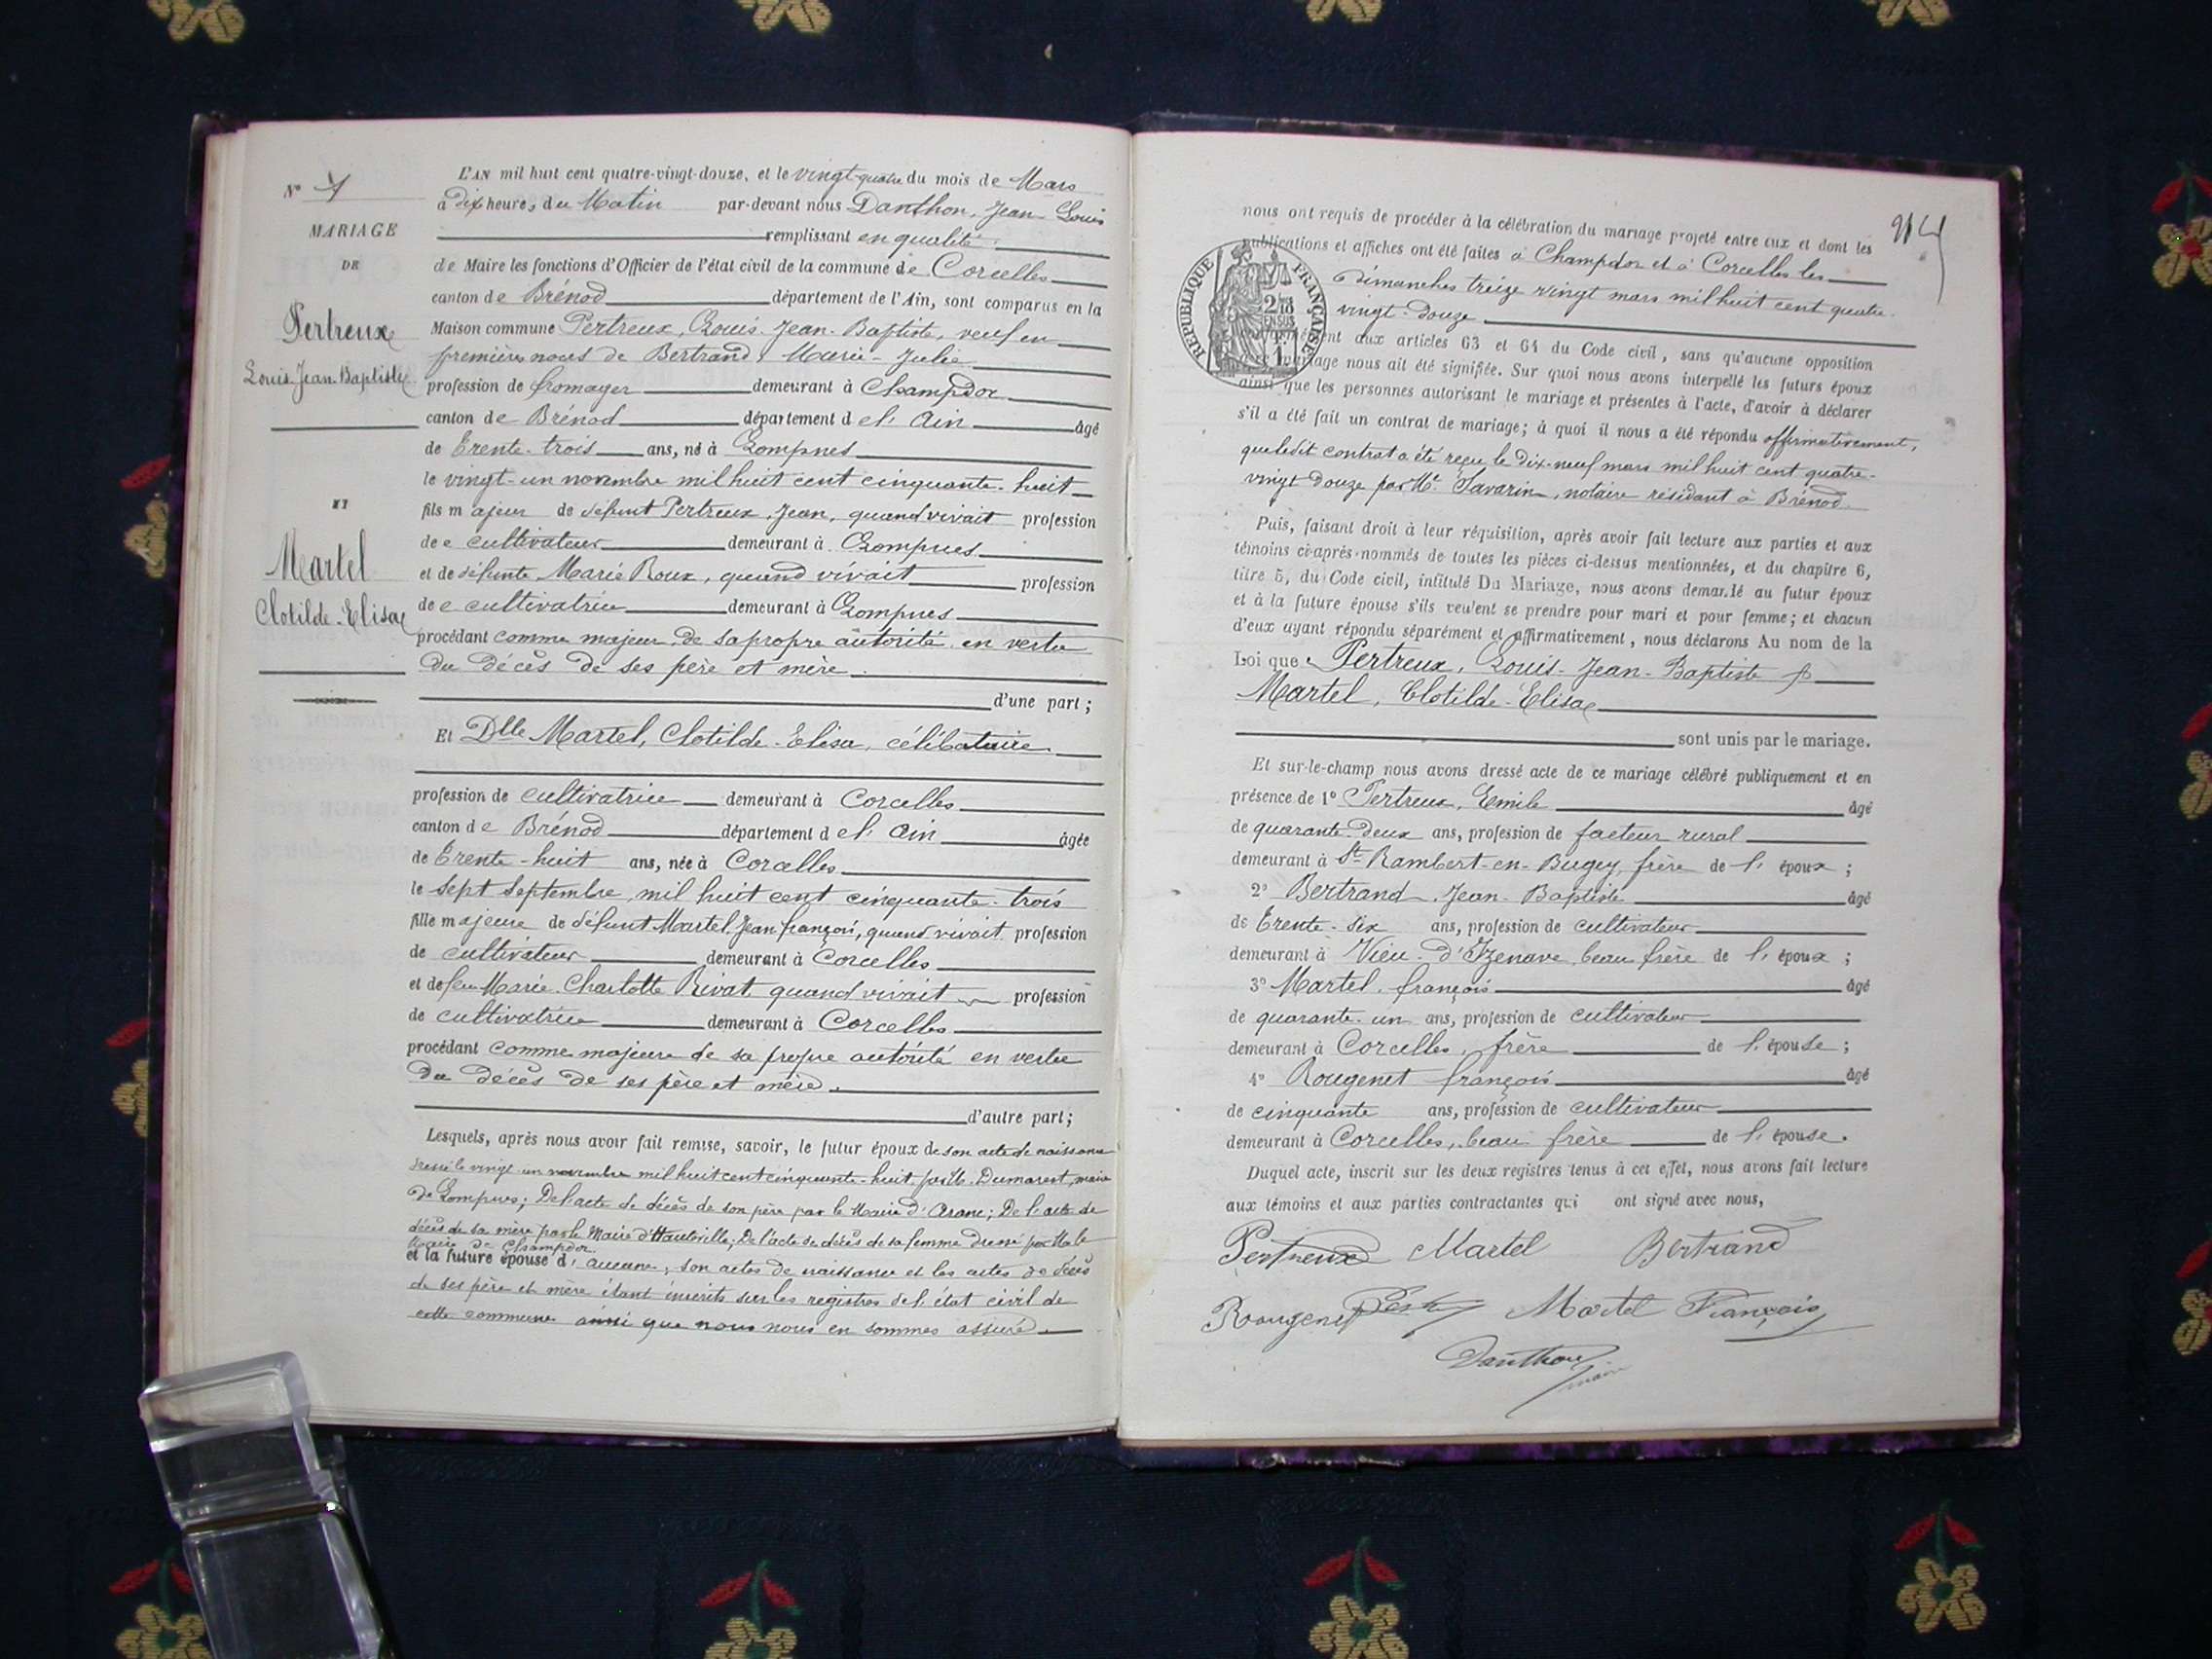 N° 1
MARIAGE
DE
Pertreux
Louis-Jean-Baptiste
ET
Martel
Clotilde-Elisa
L'AN mil huit cent quatre-vingt-douze, et le vingt-quatre du mois de Mars
à dix heures du Matin par-devant nous Danthon, Jean Louis
remplissant en qualité
de Maire les fonctions d'Officier de l'état civil de la commune de Corcelles
canton de Brénod département de l'Ain, sont comparus en la
Maison commune Pertreux, Louis-Jean-Baptiste, veuf en
premières noces de Bertrand, Marie-Julie
profession de fromager demeurant à Champdor
canton de Brénod département de l'Ain âgé
de trente-trois ans, né à Lompnes
le vingt-un novembre mil huit cent cinquante-huit
fils majeur de défunt Pertreux, Jean, quand vivait profession
de cultivateur demeurant à Lompnes
et de défunte Marie Roux, quand vivait profession
de cultivatrice demeurant à Lompnes
procédant comme majeur de sa propre autorité en vertu
du décès de ses père et mère
d'une part;
Et Dlle Martel, Clotilde-Elisa, célibataire
profession de cultivatrice demeurant à Corcelles
canton de Brénod département de l'Ain âgée
de trente-huit ans, née à Corcelles
le sept Septembre mil huit cent cinquante-trois
fille majeure de défunt Martel, Jean françois, quand vivait profession
de cultivateur demeurant à Corcelles
et de feu Marie Charlotte Rivat quand vivait profession
de cultivatrice demeurant à Corcelles
procédant comme majeure de sa propre autorité en vertu
du décès de ses père et mère.
d'autre part;
Lesquels, après nous avoir fait remise, savoir, le futur époux de son acte de naissance
dressé le vingt-un novembre mil huit cent cinquante-huit par M. Dumarest, maire
de Lompnes; De l'acte de décès de son père par le Maire d'Aranc; De l'acte de
décès de sa mère par le Maire d'Hauteville; De l'acte de décès de sa femme dressé par M. le
Maire de Champdor.
et la future épouse d'aucune, son actes de naissance et les actes de décès
de ses père et mère étant inscrits sur les registres de l'état civil de
cette commune ainsi que nous nous en sommes assuré.
nous ont requis de procéder à la célébration du mariage projeté entre eux et dont les
publications et affiches ont été faites à Champdor et à Corcelles les
dimanches treize vingt mars mil huit cent quatre-
vingt-douze
RÉPUBLIQUE FRANÇAISE
aux articles 63 et 64 du Code civil, sans qu'aucune opposition
mariage nous ait été signifiée. Sur quoi nous avons interpellé les futurs époux
ainsi que les personnes autorisant le mariage et présentes à l'acte, d'avoir à déclarer
s'il a été fait un contrat de mariage; à quoi il nous a été répondu affirmativement,
que ledit contrat a été reçu le dix-neuf mars mil huit cent quatre-
vingt douze par Me. Savarin, notaire résidant à Brénod.
Puis, faisant droit à leur réquisition, après avoir fait lecture aux parties et aux
témoins ci-après-nommés de toutes les pièces ci-dessus mentionnées, et du chapitre 6,
titre 5, du Code civil, intitulé Du Mariage, nous avons demandé au futur époux
et à la future épouse s'ils veulent se prendre pour mari et pour femme; et chacun
d'eux ayant répondu séparément et affirmativement, nous déclarons Au nom de la
Loi que Pertreux, Louis-Jean-Baptiste &
Martel, Clotilde-Elisa
sont unis par le mariage.
Et sur-le-champ nous avons dressé acte de ce mariage célébré publiquement et en
présence de 1° Pertreux, Emile âgé
de quarante-deux ans, profession de facteur rural
demeurant à St-Rambert-en-Bugey, frère de l'époux;
2° Bertrand, Jean-Baptiste âgé
de trente-six ans, profession de cultivateur
demeurant à Vieu-d'Izenave beau frère de l'époux;
3° Martel, françois âgé
de quarante-un ans, profession de cultivateur
demeurant à Corcelles, frère de l'épouse;
4° Rougenet françois âgé
de cinquante ans, profession de cultivateur
demeurant à Corcelles, beau frère de l'épouse.
Duquel acte, inscrit sur les deux registres tenus à cet effet, nous avons fait lecture
aux témoins et aux parties contractantes qui ont signé avec nous,
Pertreux Martel Bertrand
Rougenet Martel François
Danthon
maire